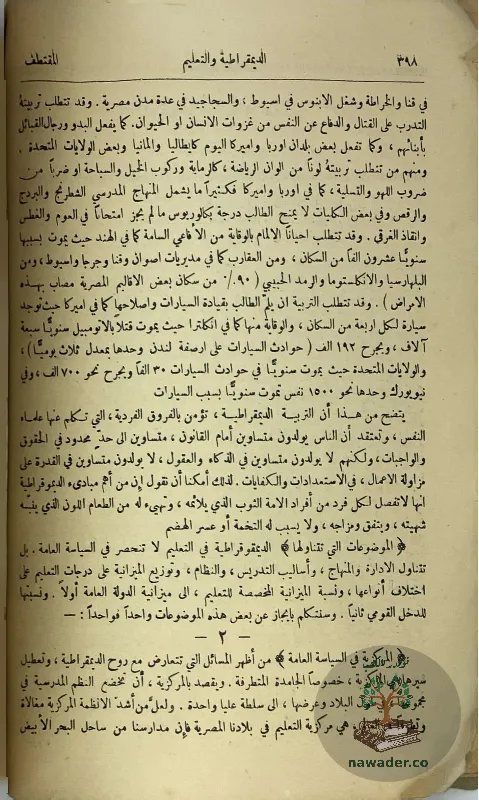 ٣٩٨ الديمقراطية والتعليم المقتطف
في قنا والخراطة وشغل الابنوس في اسيوط ، والسجاجيد في عدة مدن مصرية . وقد تتطلب تربيته
التدرب على القتال والدفاع عن النفس من غزوات الانسان او الحيوان. كما يفعل البدو ورجال القبائل
بأبنائهم ، وكما تفعل بعض بلدان اوربا واميركا اليوم كايطاليا والمانيا وبعض الولايات المتحدة .
ومنهم من تتطلب تربيته لوناً من الوان الرياضة ، كالرماية وركوب الخيل والسباحة او ضرباً من
ضروب اللهو والتسلية ، كما في اوربا واميركا فكثيراً ما يشمل المنهاج المدرسي الشطرنج والبردج
والرقص وفي بعض الكليات لا يمنح الطالب درجة بكالوريوس ما لم يجز امتحاناً في العوم والغطس
وانقاذ الغرقى . وقد تتطلب احياناً الالمام بالوقاية من الأفاعي السامة كما في الهند حيث يموت بسببها
سنويًّا عشرون الفاً من السكان ، ومن العقارب كما في مديريات اصوان وقنا وجرجا واسيوط ، ومن
البلهارسيا والانكلستوما والرمد الحبيبي ( ٩٠٪ من سكان بعض الاقاليم المصرية مصاب بهــذه
الامراض ) . وقد تتطلب التربية ان يلمّ الطالب بقيادة السيارات واصلاحها كما في اميركا حيث توجد
سيارة لكل اربعة من السكان ، والوقاية منها كما في انكلترا حيث يموت قتلاً بالاتومبيل سنويًّا سبعة
آلاف ، ويجرح ١٩٢ الف ( حوادث السيارات على ارصفة لندن وحدها بمعدل ثلاث يوميًّا ) ،
والولايات المتحدة حيث يموت سنويًّا في حوادث السيارات ٣٠ الفاً ويجرح نحو ٧٠٠ الف ، وفي
نيويورك وحدها نحو ١٥٠٠ نفس تموت سنويًّا بسبب السيارات
يتضح من هــذا أن التربيــة الديمقراطيــة ، تؤمن بالفروق الفردية ، التي تتكلم عنها علمــاء
النفس ، وتعتقد أن الناس يولدون متساوين أمام القانون ، متساوين الى حدّ محدود في الحقوق
والواجبات ، ولكنهم لا يولدون متساوين في الذكاء والعقول ، لا يولدون متساوين في القدرة على
مزاولة الاعمال ، في الاستعدادات والكفايات . لذلك أمكننا أن نقول إن من أهم مبادىء الديموقراطية
انها لا تفصل لكل فرد من أفراد الامة الثوب الذي يلائمه ، وتهيء له من الطعام اللون الذي ينبّه
شهيته ، ويتفق ومزاجه ، ولا يسبب له التخمة أو عسر الهضم
﴿ الموضوعات التي تتناولها ﴾ الديموقوقراطية في التعليم لا تنحصر في السياسة العامة . بل
تتناول الادارة والمنهاج ، وأساليب التدريس ، والنظام ، وتوزيع الميزانية على درجات التعليم على
اختلاف أنواعها ، ونسبة الميزانية المخصصة للتعليم ، الى ميزانية الدولة العامة أولاً . ونسبتها
للدخل القومي ثانياً . وسنتكلم بايجاز عن بعض هذه الموضوعات واحداً فواحداً : —
— ٢ —
﴿ المركزية في السياسة العامة ﴾ من أظهر المسائل التي تتعارض مع روح الديمقراطية ، وتعطيل
سيرها المركزية ، خصوصاً الجامدة المتطرفة . ويقصد بالمركزية ، أن تخضع النظم المدرسية في
البلاد وعرضها ، الى سلطة عليا واحدة . ولعل من أشد الانظمة المركزية مغالاة
وتطرفاً في العالم ، هي مركزية التعليم في بلادنا المصرية فإن مدارسنا من ساحل البحر الأبيض
nawader.co